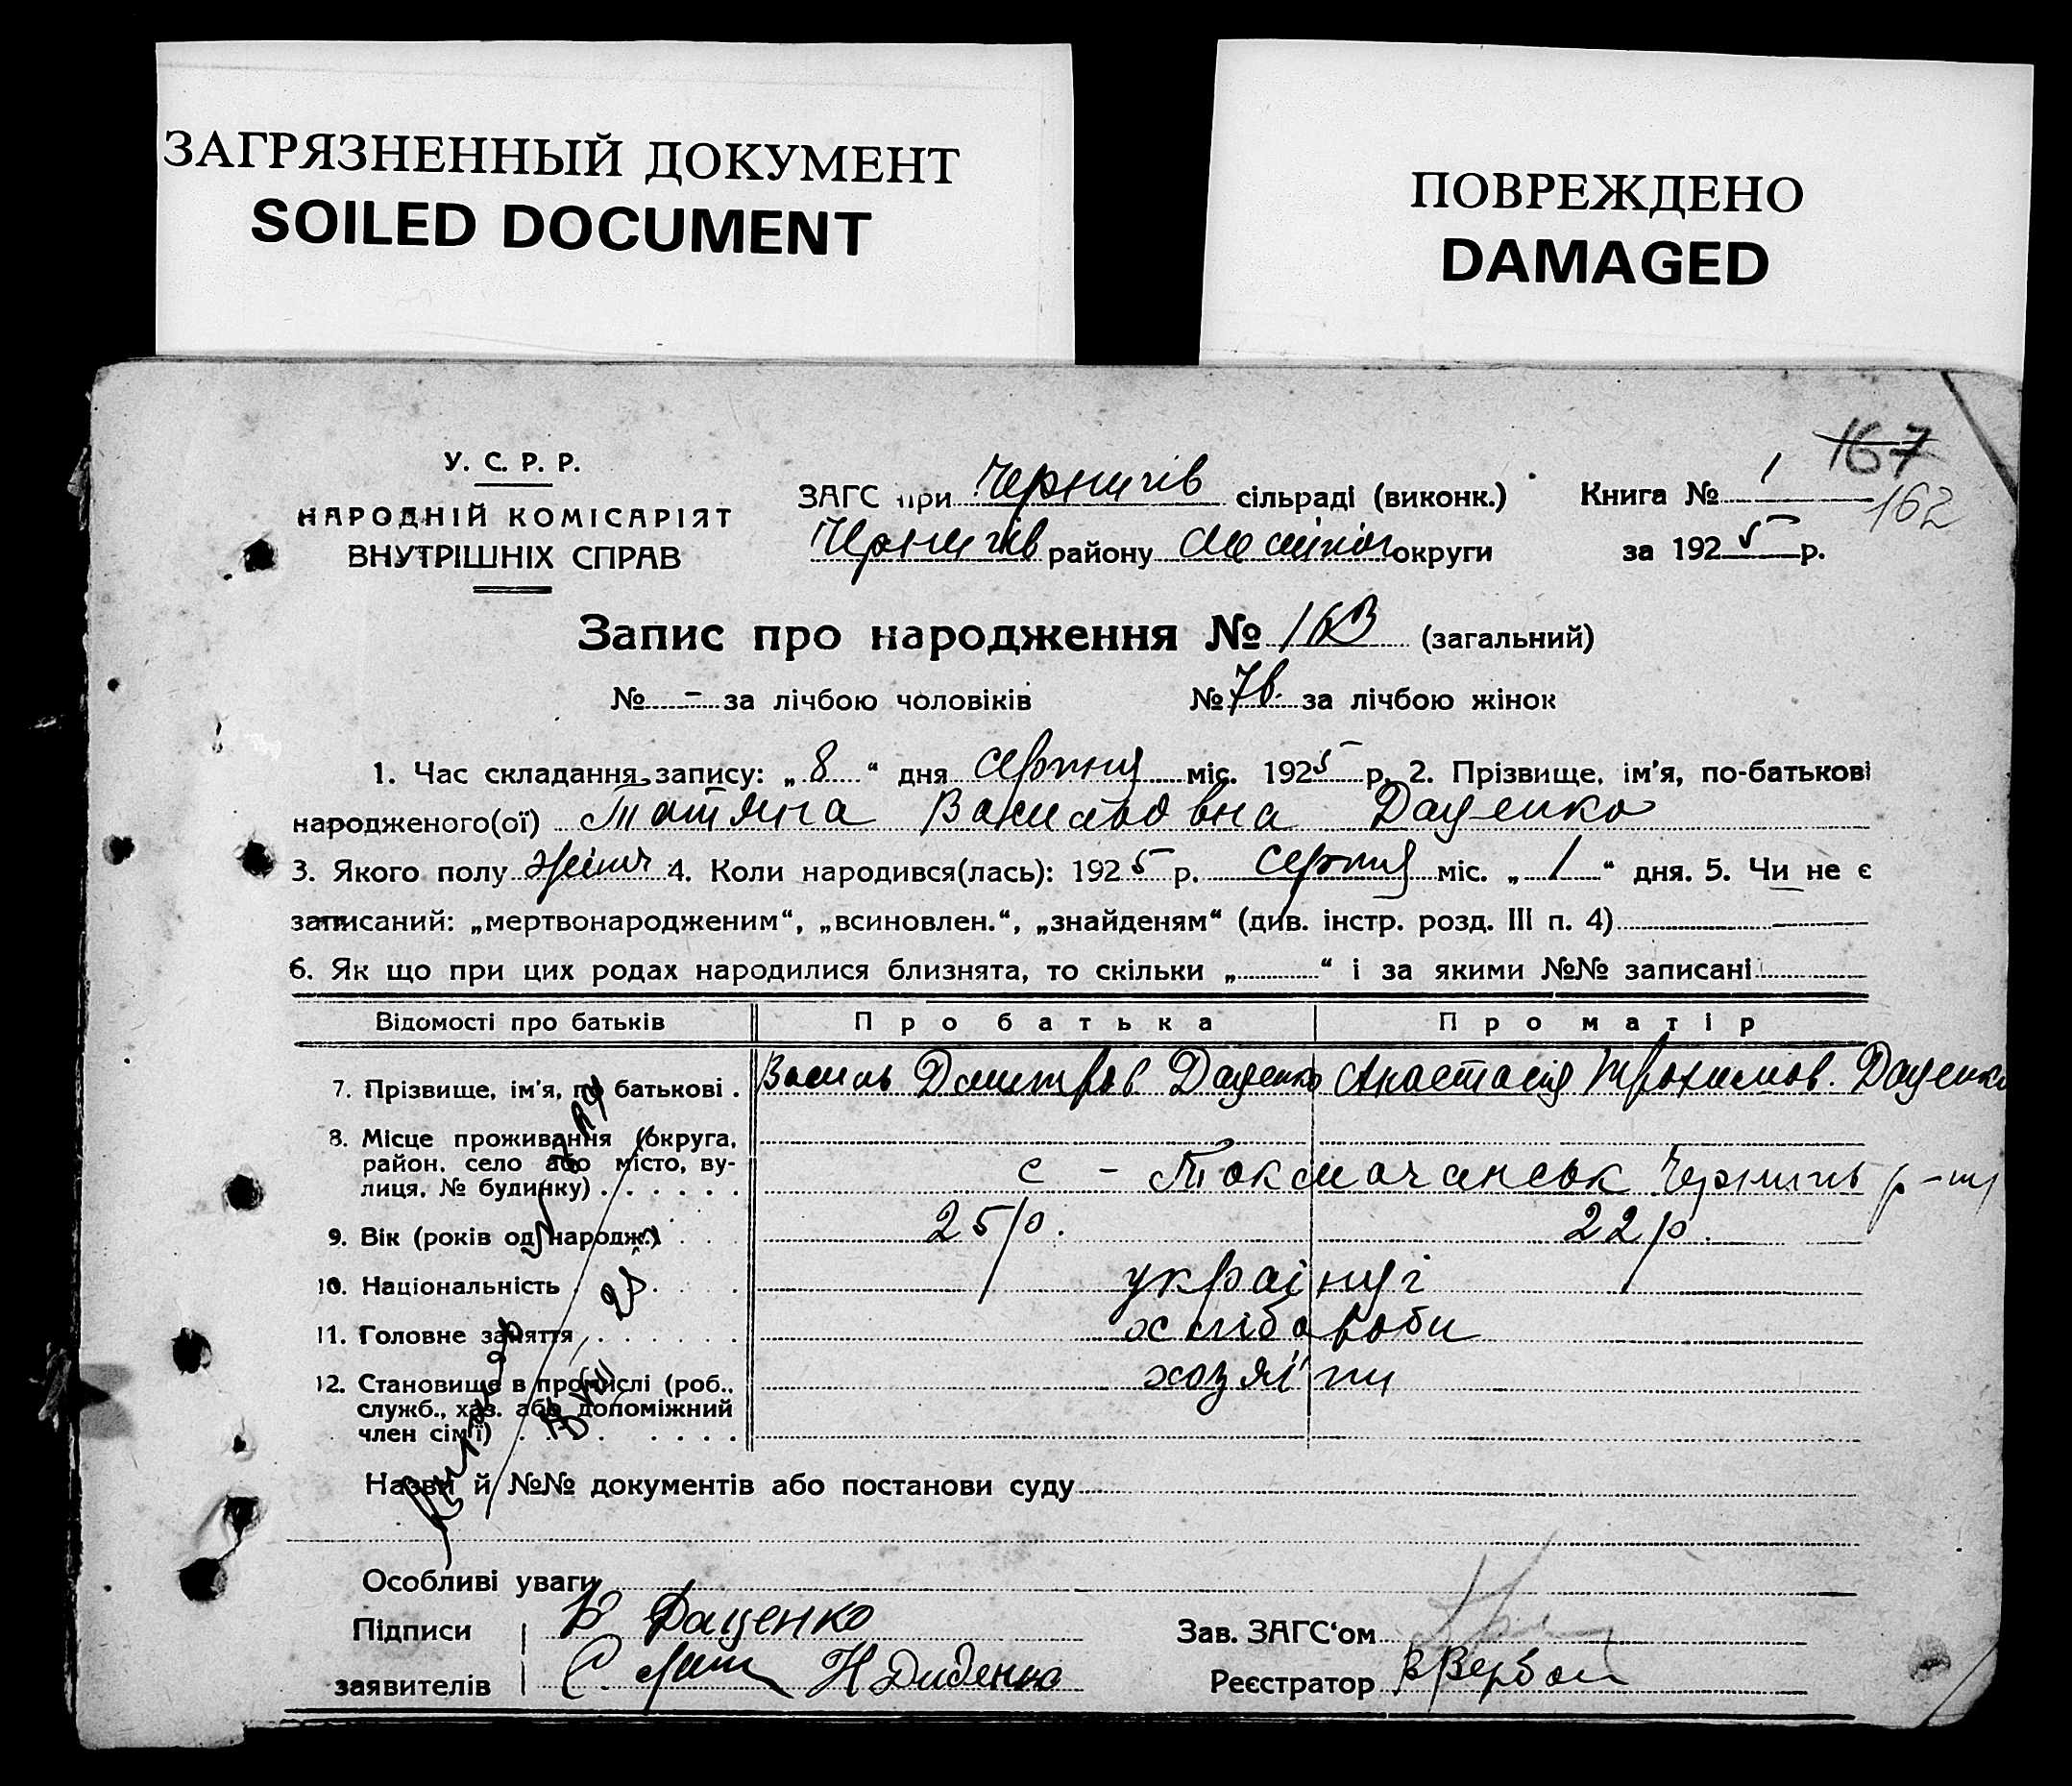 ЗАГРЯЗНЕННЫЙ ДОКУМЕНТ
SOILED DOCUMENT
ПОВРЕЖДЕНО
DAMAGED
167
162
У. С. Р. Р.
НАРОДНІЙ КОМІСАРІЯТ
ВНУТРІШНІХ СПРАВ
ЗАГС при Чернигів сільраді (виконк.) Книга № 1
Чернигів району округи за 1925 р.
Запис про народження № 163 (загальний)
№ - за лічбою чоловіків № за лічбою жінок
1. Час складання запису: „ 8 “ дня серпня міс. 1925 р. 2. Прізвище, ім'я, по-батькові
народженого(ої) Татяна Васильовна Даценко
3. Якого полу жіноч 4. Коли народився(лась): 1925 р. серпня міс. „ 1 “ дня. 5. Чи не є
записаний: „мертвонародженим“, „всиновлен.“, „знайденям“ (див. інстр. розд. III п. 4)
6. Як що при цих родах народилися близнята, то скільки „ “ і за якими №№ записані
Відомості про батьків Про батька Про матір
7. Прізвище, ім'я, по батькові . Василь Дмитров Даценко Анастасія Трохимов. Даценко
8. Місце проживання (округа,
район, село або місто, ву-
лиця, № будинку) с - Токмачанськ Чернигів р-ну
9. Вік (років од народж.) 25 р. 22 р.
10. Національність українці
11. Головне заняття хлібороби
12. Становище в промислі (роб.,
служб., хаз. або допоміжний
член сім'ї) хозяїни
Назви й №№ документів або постанови суду
Особливі уваги
Підписи В Даценко Зав. ЗАГС'ом
заявителів С. Н Диденко Реєстратор